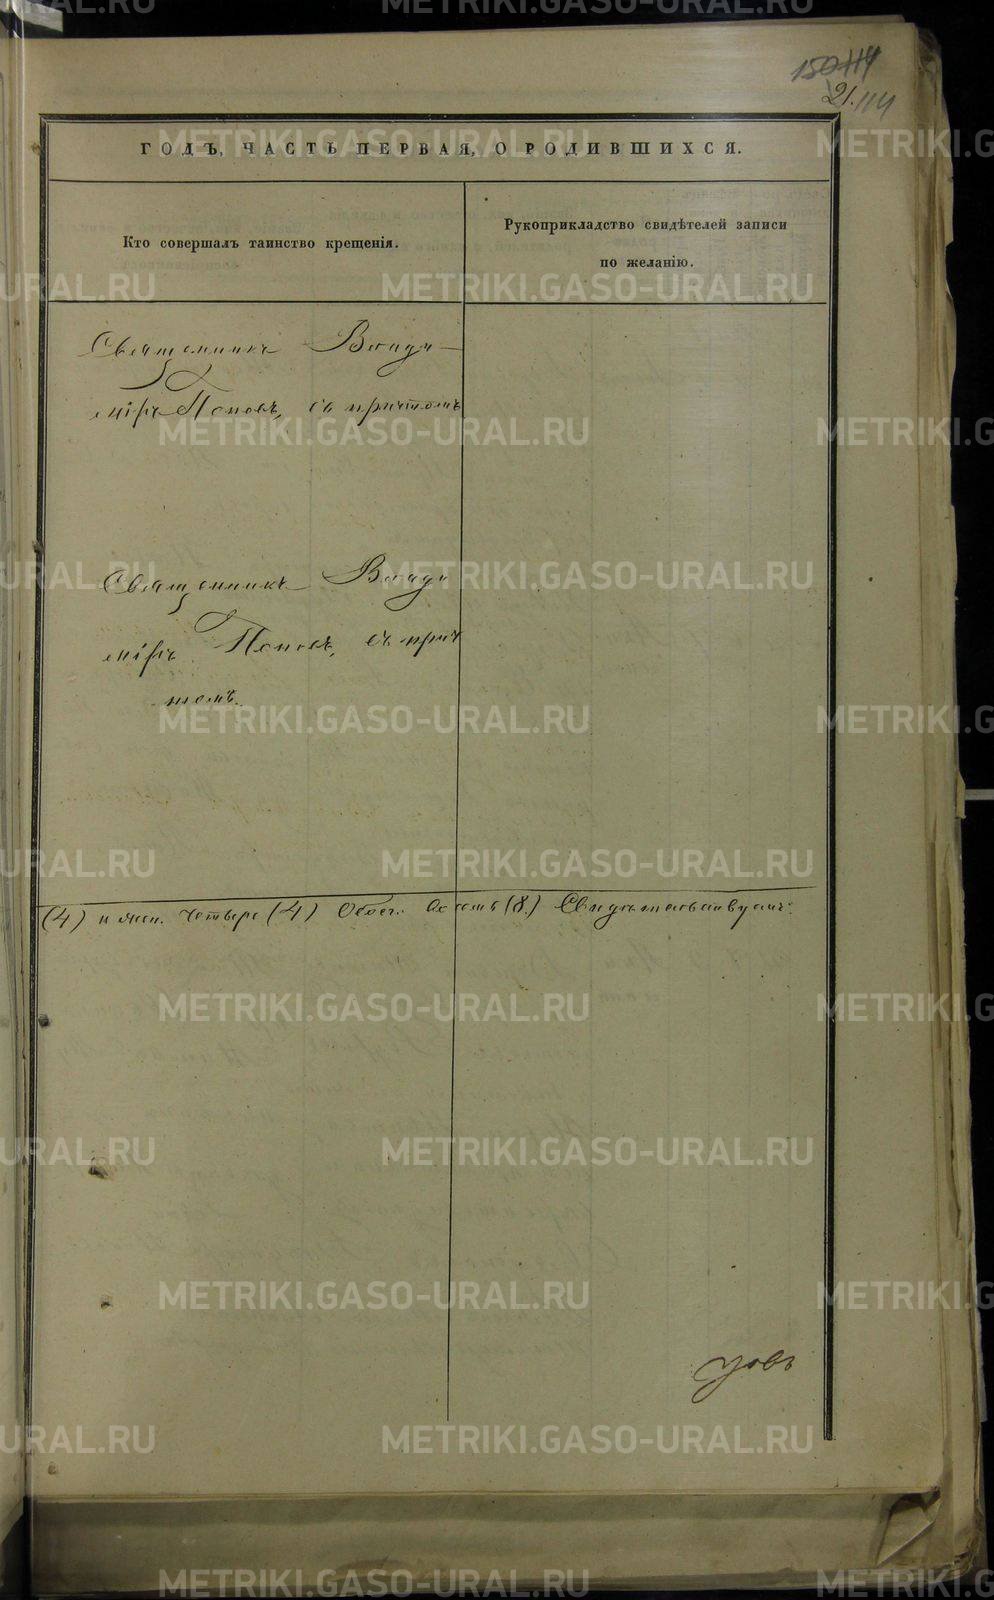 150 114
21. 114
ГОДЪ, ЧАСТЬ ПЕРВАЯ, О РОДИВШИХСЯ.
Кто совершалъ таинство крещенія.
Рукоприкладство свидѣтелей записи
по желанію.
Священникъ Влади-
міръ Поповъ, съ причтомъ
Священникъ Влади
міръ Поповъ, съ прич
томъ.
(4) и жен. четыре (4) Обоего восемь (8.) Свидѣтельствуемъ:
METRIKI.GASO-URAL.RU